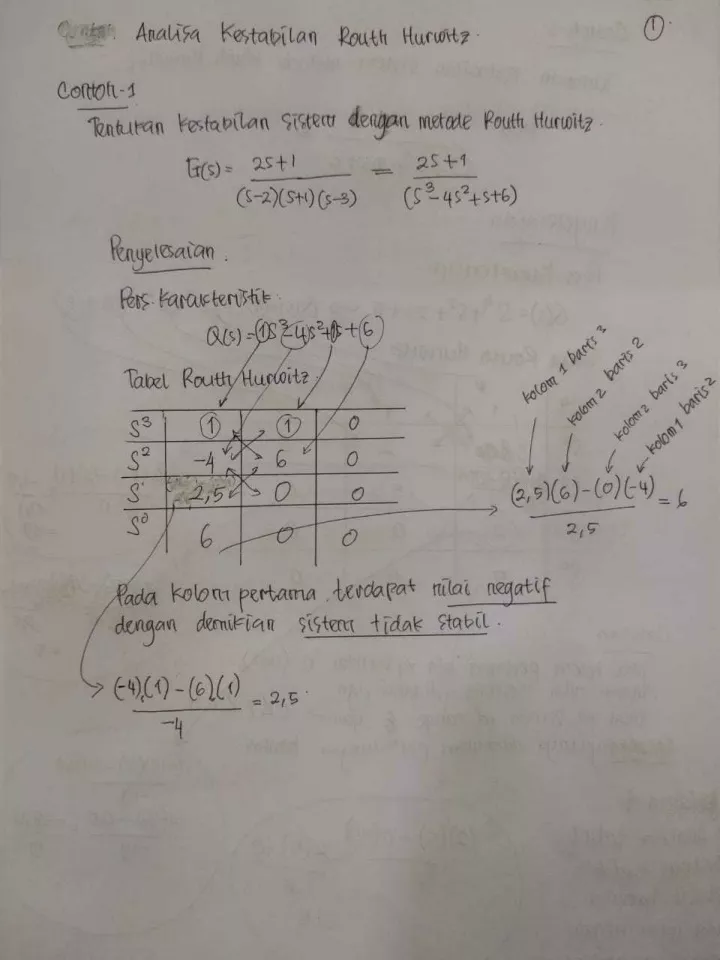 Contoh: Analisa Kestabilan Routh Hurwitz. ①
Contoh-1
Tentukan Kestabilan sistem dengan metode Routh Hurwitz.
G(s) = 2s+1 / (s-2)(s+1)(s-3) = 2s+1 / (s³-4s²+s+6)
Penyelesaian.
Pers. Karakteristik.
Q(s) = 1s³-4s²+1s+6
Tabel Routh Hurwitz.
kolom 1 baris 3
kolom 2 baris 2
kolom 2 baris 3
kolom 1 baris 2
s³ 1 1 0
s² -4 6 0
s¹ 2,5 0 0
s⁰ 6 0 0
(2,5)(6)-(0)(-4) / 2,5 = 6
Pada kolom pertama terdapat nilai negatif
dengan demikian sistem tidak stabil.
(-4).(1) - (6).(1) / -4 = 2,5.